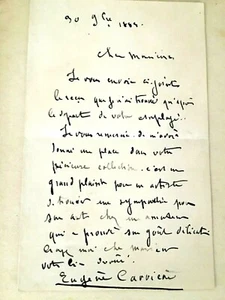 30 9bre 1883.
Cher Monsieur
Je vous envoie ci-joint
le reçu que j'ai trouvé qu'après
le départ de votre
Je vous remercie de m'avoir
donné une place dans votre
précieuse collection. c'est un
grand plaisir pour un artiste
de trouver une sympathie pour
son art chez un amateur
qui a prouvé son goût délicat
moi cher Monsieur
votre bien dévoué.
Eugène Carrière